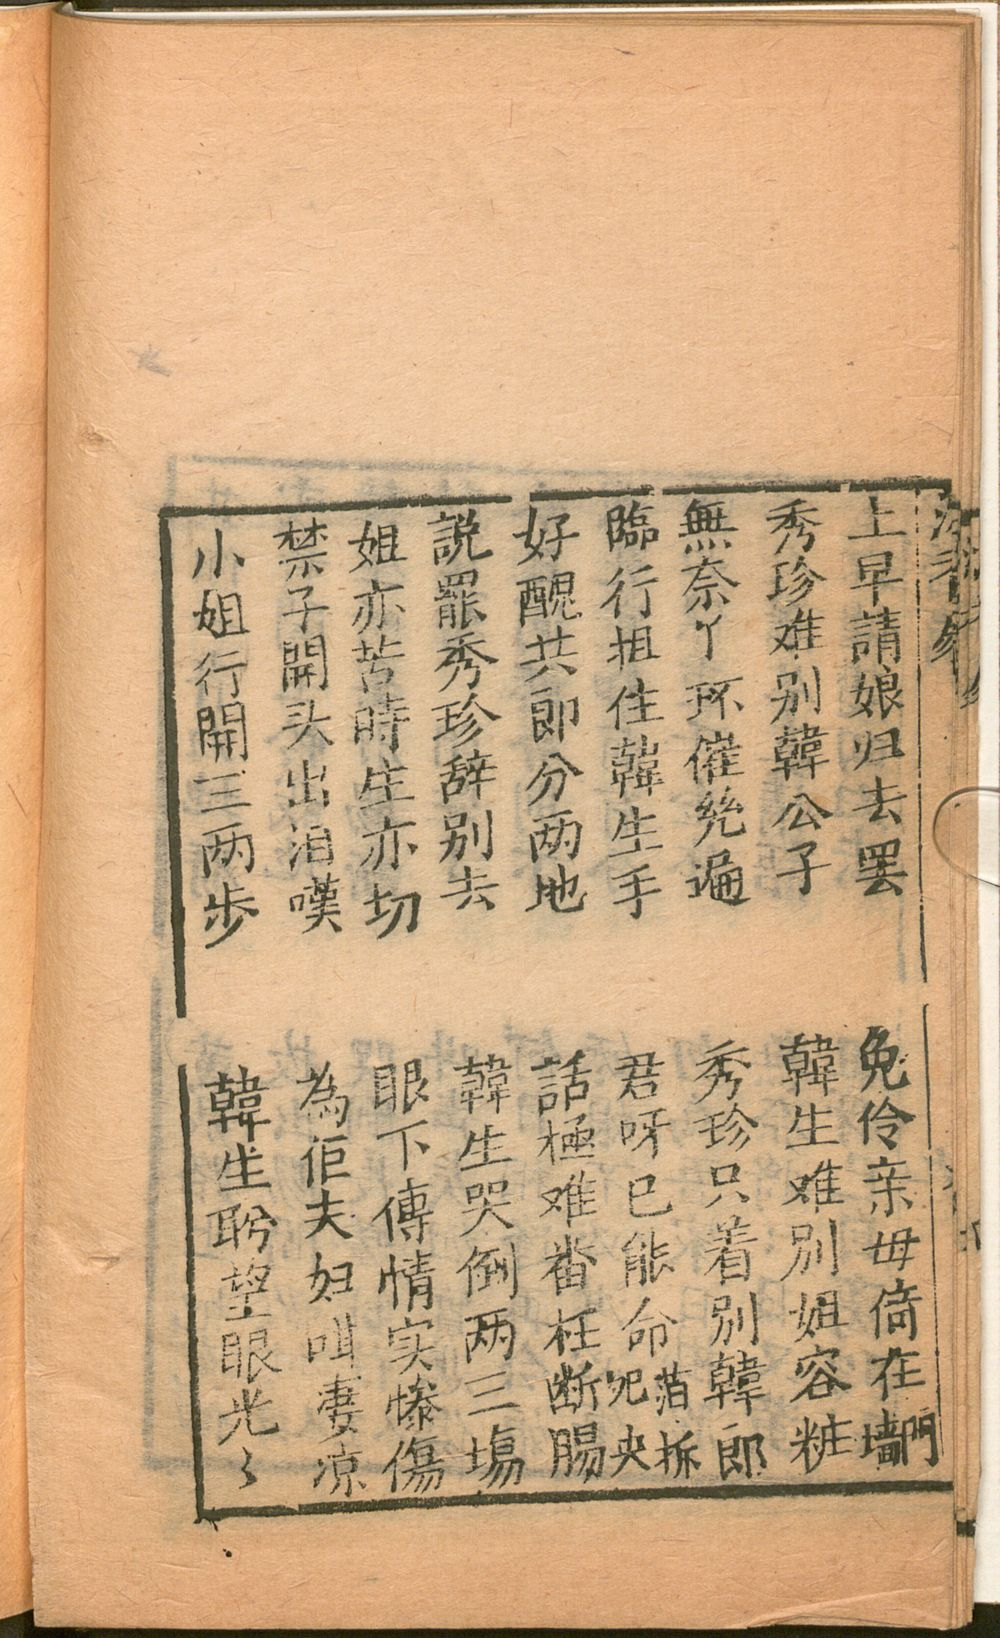 上早請娘归去罢
免伶亲毋倚在墙門
秀珍难别韓公子
韓生难别姐容粧
無奈丫环催㡬遍
秀珍只着别韓郎
臨行抯住韓生手
君呀已能命犯夹落拆
好醜共即分两地
話極难畨枉断腸
説罷秀珍辞别去
韓生哭倒两三塲
姐亦苦時生亦切
眼下傳情实惨傷
禁子開头出泪嘆
為佢夫妇叫凄凉
小姐行開三两步
韓生盼望眼光々